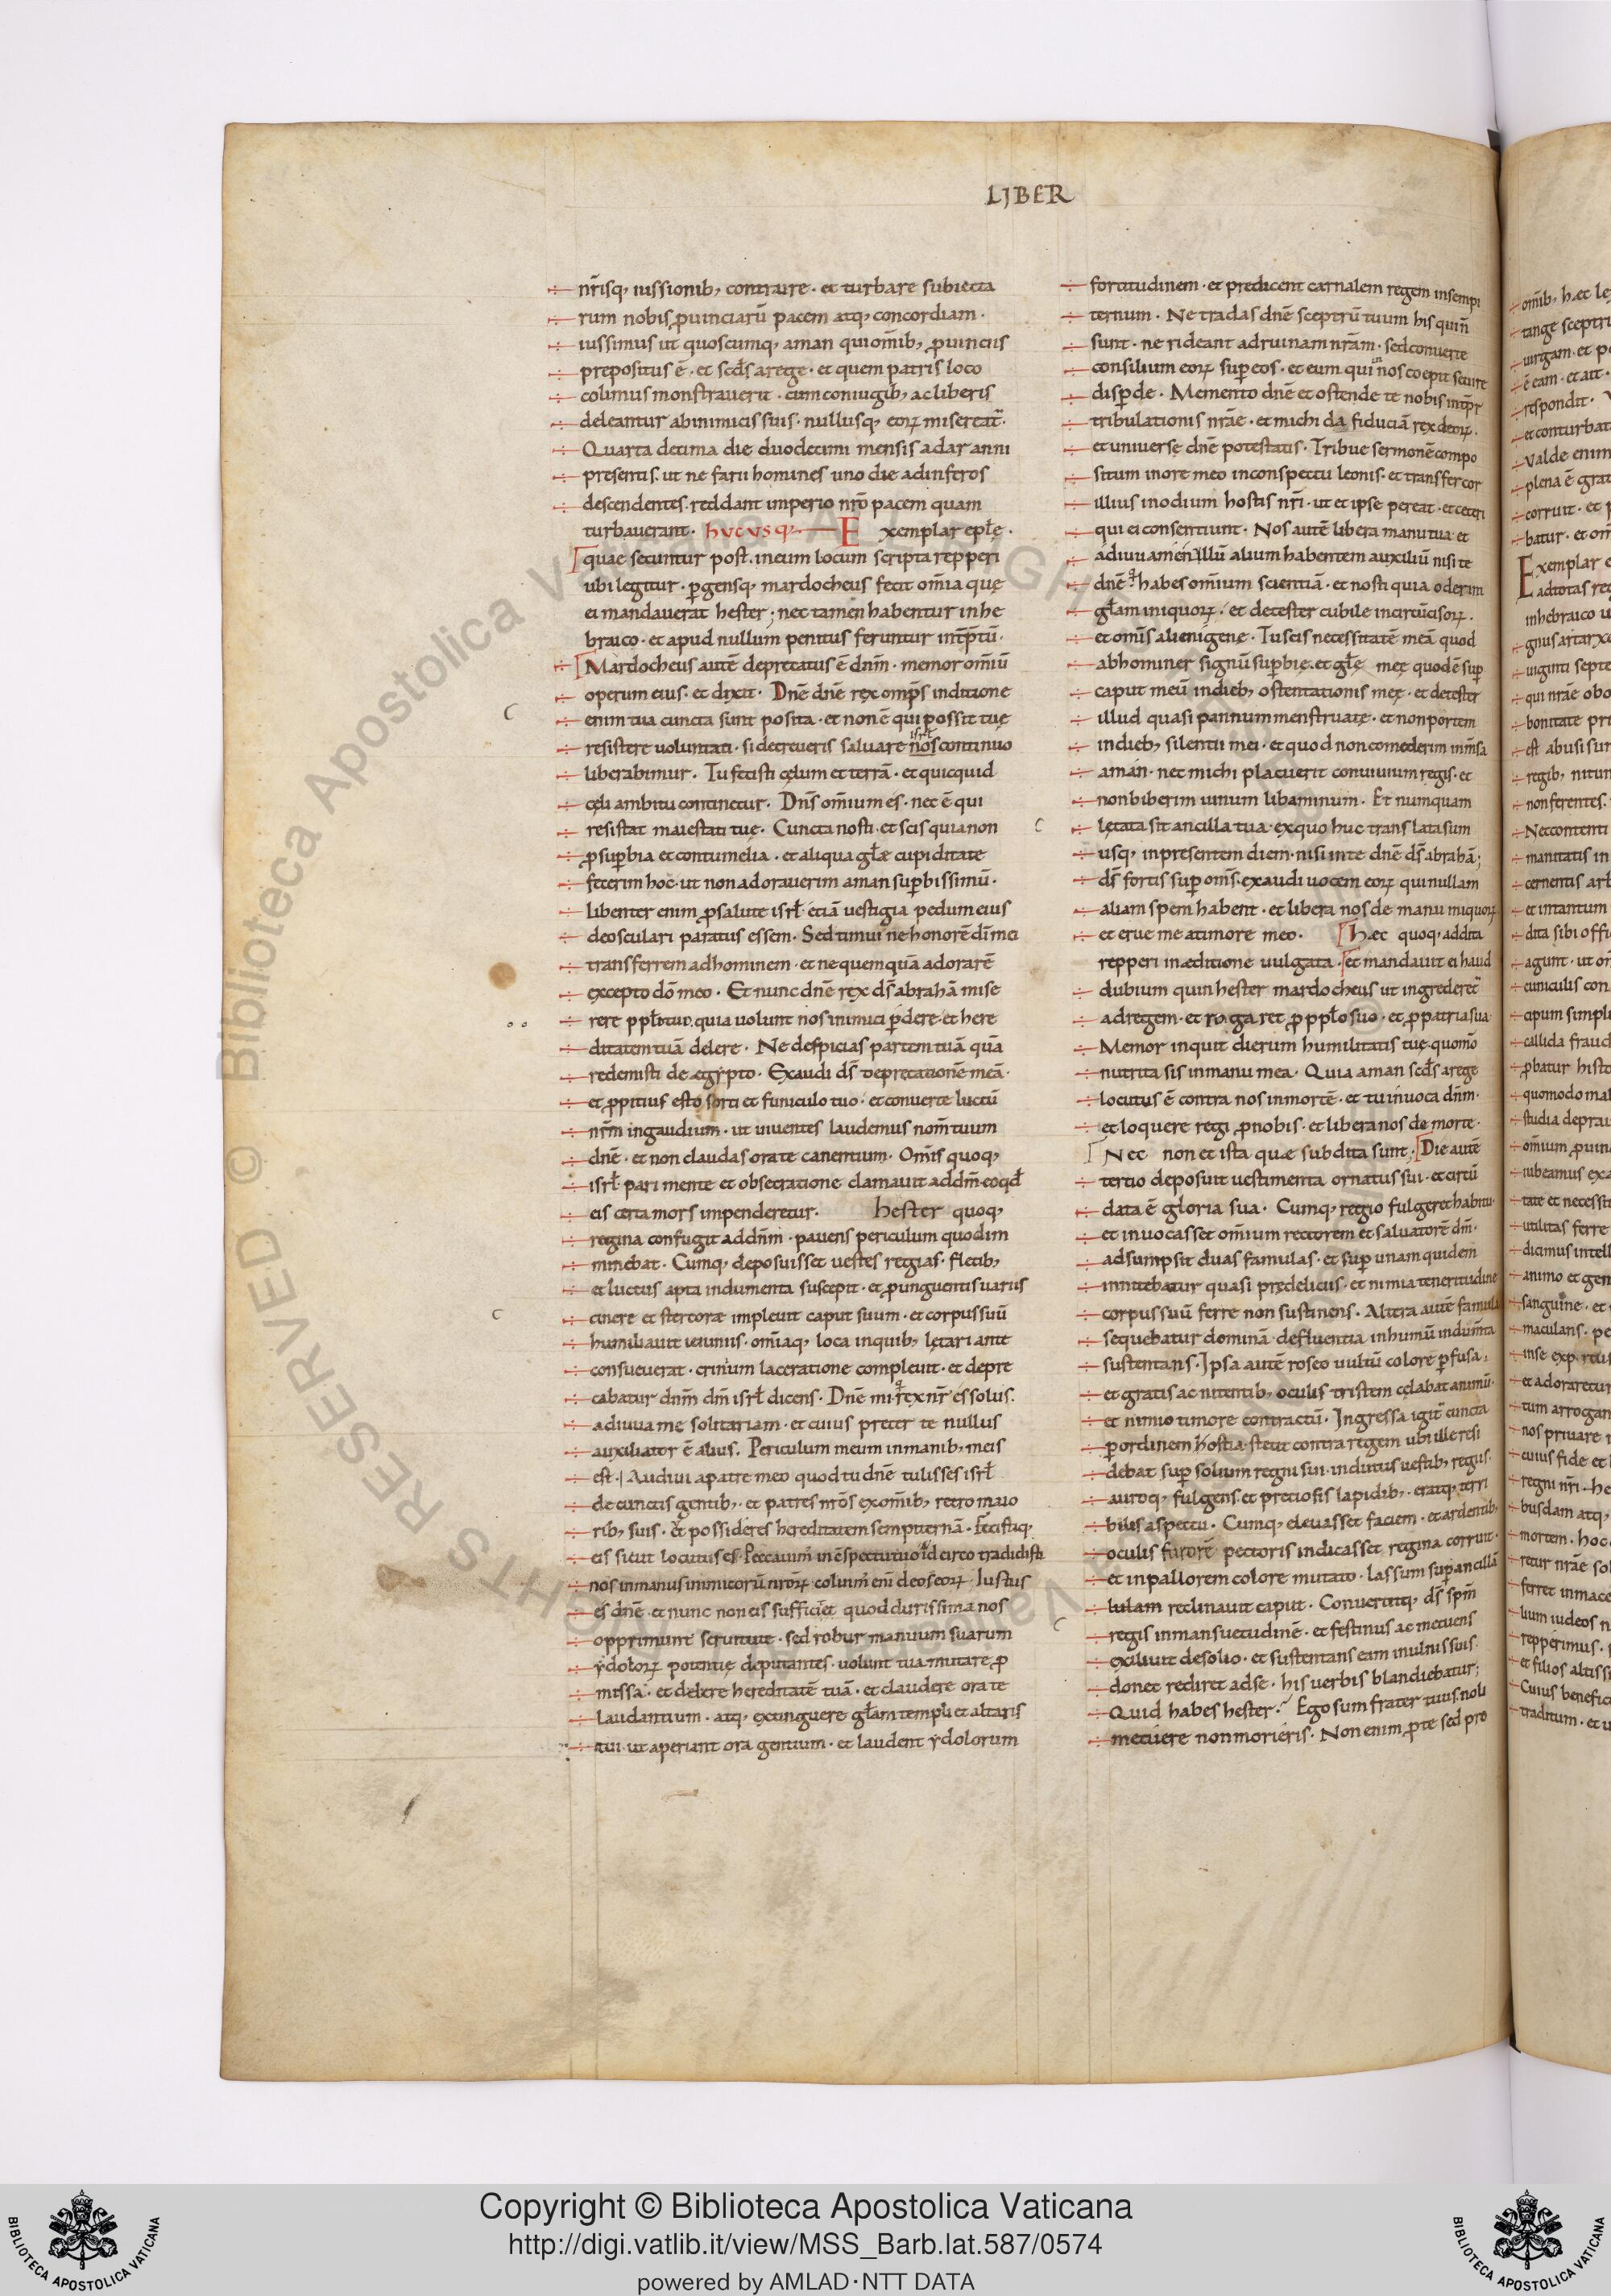 LIBER
nr̄isq; iussionib; contraire · et turbare subiecta
rum nobis ꝓuinciarū pacem atq; concordiam ·
iussimus ut quoscumq; aman qui om̄ib; ꝓuinciis
prepositus ē · et scd̄s a rege · et quem patris loco
colimus monstrauerit · cum coniugib; ac liberis
deleantur ab inimicis suis · nullusq; eoꝝ misereat̄ ·
Quarta decima die duodecimi mensis adar anni
presentis · ut nefarii homines uno die ad inferos
descendentes · reddant imperio nr̄o pacem quam
turbauerant · hucusq; Exemplar epłe ·
quae secuntur post · in eum locum scripta repperi
ubi legitur · ꝑgensq; mardocheus fecit om̄ia quę
ei mandauerat hester ; nec tamen habentur in he
braico · et apud nullum penitus feruntur int̄p̄tū ·
Mardocheus autē deprecatus ē dn̄m · memor om̄iū
operum eius · et dixit · Dn̄e dn̄e rex omp̄s in ditione
enim tua cuncta sunt posita · et non ē qui possit tuę
resistere uoluntati · si decreueris saluare nos continuo
isrł
liberabimur · Tu fecisti cęlum et terrā · et quicquid
cęli ambitu continetur · Dn̄s om̄ium es · nec ē qui
resistat maiestati tuę · Cuncta nosti · et scis quia non
ꝓ suꝑbia et contumelia · et aliqua głæ cupiditate
fecerim hoc · ut non adorauerim aman suꝑbissimū ·
libenter enim ꝓ salute isrł · etiā uestigia pedum eius
deosculari paratus essem · Sed timui ne honorē dī mei
transferrem ad hominem · et ne quemquā adorarē
excepto dō meo · Et nunc dn̄e rex ds̄ abrahā mise
rere ppło tuo · quia uolunt nos inimici ꝑdere · et here
ditatem tuā delere · Ne despicias partem tuā quā
redemisti de ægypto · Exaudi ds̄ deprecationē meā ·
et ꝓpitius esto sorti et funiculo tuo · et conuerte luctū
nr̄m in gaudium · ut uiuentes laudemus nom̄ tuum
dn̄e · et non claudas ora te canentium · Om̄is quoq;
isrł pari mente et obsecratione clamauit ad dn̄m · eo qd̄
eis certa mors impenderetur · hester quoq;
regina confugit ad dn̄m · pauens periculum quod im
minebat · Cumq; deposuisset uestes regias · fletib;
et luctus apta indumenta suscepit · et ꝓ unguentis uariis
cinere et stercore impleuit caput suum · et corpus suū
humiliauit ieiuniis · om̄iaq; loca in quib; lętari ante
consueuerat · crinium laceratione compleuit · et depre
cabatur dn̄m dm̄ isrł dicens · Dn̄e mi rex nr̄ es solus ·
adiuua me solitariam · et cuius preter te nullus
auxiliator ē alius · Periculum meum in manib; meis
est · Audiui a patre meo quod tu dn̄e tulisses isrł
de cunctis gentib; · et patres nr̄os ex om̄ib; retro maio
rib; suis · et possideres hereditatem sempiternā · fecistiq;
eis sicut locutus es · Peccauim̄ in c̄spectu tuo · idcirco tradidisti
nos in manus inimicorū nr̄oꝝ · coluim̄ eni deos eoꝝ · Iustus
es dn̄e · et nunc non eis sufficiet quod durissima nos
opprimunt seruitute · sed robur manuum suarum
ydoloꝝ potentię deputantes · uolunt tua mutare ꝓ
missa · et delere hereditatē tuā · et claudere ora te
laudantium · atq; extinguere głam templi et altaris
tui · ut aperiant ora gentium · et laudent ydolorum
fortitudinem · et predicent carnalem regem in sempi
ternum · Ne tradas dn̄e sceptrū tuum his qui n̄
sunt · ne rideant ad ruinam nr̄am · sed conuerte
consilium eoꝝ suꝑ eos · et eum qui in nos coepit seuire
disꝑde · Memento dn̄e et ostende te nobis in tp̄r
tribulationis nr̄ae · et michi da fiduciā rex deoꝝ ·
et uniuerse dn̄e potestatis · Tribue sermonē compo
situm in ore meo in conspectu leonis · et transfer cor
illius in odium hostis nr̄i · ut et ipse pereat · et ceteri
qui ei consentiunt · Nos autē libera manu tua · et
adiuua me n̄ illū alium habentem auxiliū nisi te
dn̄e · q habes om̄ium scientiā · et nosti quia oderim
głam iniquoꝝ · et detester cubile incircūcisoꝝ ·
et om̄is alienigene · Tu scis necessitatē meā quod
abhominer signū suꝑbię · et głę meę quod ē suꝑ
caput meū in dieb; ostentationis meę · et detester
illud quasi pannum menstruatę · et non portem
in dieb; silentii mei · et quod non comederim in m̄sa
aman · nec michi placuerit conuiuium regis · et
non biberim uinum libaminum · Et numquam
lętata sit ancilla tua · ex quo huc translata sum
usq; in presentem diem · nisi in te dn̄e ds̄ abrahā ;
ds̄ fortis suꝑ om̄s · exaudi uocem eoꝝ qui nullam
aliam spem habent · et libera nos de manu iniquoꝝ
et erue me a timore meo · Hæc quoq; addita
repperi in æditione uulgata · et mandauit ei haud
dubium quin hester mardocheus ut ingrederet̄
ad regem · et rogaret ꝓ ppło suo · et ꝓ patria sua
Memor inquit dierum humilitatis tuę · quom̊
nutrita sis in manu mea · Quia aman scd̄s a rege
locutus ē contra nos in mortē · et tu inuoca dn̄m ·
et loquere regi ꝓ nobis · et libera nos de morte ·
Nec non et ista quæ subdita sunt ; Die autē
tertio deposuit uestimenta ornatus sui · et circū
data ē gloria sua · Cumq; regio fulgeret habitu ·
et inuocasset om̄ium rectorem et saluatorē dm̄ ·
adsumpsit duas famulas · et suꝑ unam quidem
innitebatur quasi prę deliciis · et nimia teneritudine
corpus suū ferre non sustinens · Altera autē famula
sequebatur dominā · defluentia in humū indum̄ta
sustentans · Ipsa autē roseo uultū colore ꝑfusa ·
et gratis ac nitentib; oculis tristem celabat animū ·
et nimio timore contractū · Ingressa igit̄ cuncta
ꝑ ordinem hostia · stetit contra regem ubi ille resi
debat suꝑ solium regni sui · indutus uestib; regiis ·
auroq; fulgens · et preciosis lapidib; · eratq; terri
bilis aspectu · Cumq; eleuasset faciem · et ardentib;
oculis furorē pectoris indicasset · regina corruit ·
et in pallorem colore mutato · lassum suꝑ ancillā
lulam reclinauit caput · Conuertitq; ds̄ spm̄
regis in mansuetudinē · et festinus ac metuens
exiliuit de solio · et sustentans eam in ulnis suis ·
donec rediret ad se · his uerbis blandiebatur ;
Quid habes hester? Ego sum frater tuus · noli
metuere non morieris · Non enim ꝓ te sed pro
om̄ib; hæc le
tange sceptru
uirgam · et po
ē eam · et ait ·
respondit ·
et conturbat
Valde enim
plena ē grat
corruit · et
batur · et om̄
Exemplar e
ad totas reg
in hebraico u
gnus artarxe
uiginti septe
qui nr̄ae obo
bonitate pri
est abusi sun
regib; nitun
non ferentes ·
Nec contenti
manitatis in
cernentis arb
et in tantum
dita sibi offi
agunt · ut om̄
cuniculis con
cipum simpli
callida fraud
ꝓbatur histo
quomodo mal
studia deprau
om̄ium ꝓuin
iubeamus exa
tate et necessi
utilitas ferre
dicimus intell
animo et gen
sanguine · et
maculans · pe
inse exp
et adoraretur
tum arrogan
nos priuare r
cuius fide et
regni nr̄i · he
busdam atq;
mortem · hoc
retur nr̄ae sol
ferret in mace
lium iudeos n
repperimus ·
et filios altissi
Cuius benefic
traditum · et u
Copyright © Biblioteca Apostolica Vaticana
http://digi.vatlib.it/view/MSS_Barb.lat.587/0574
powered by AMLAD·NTT DATA